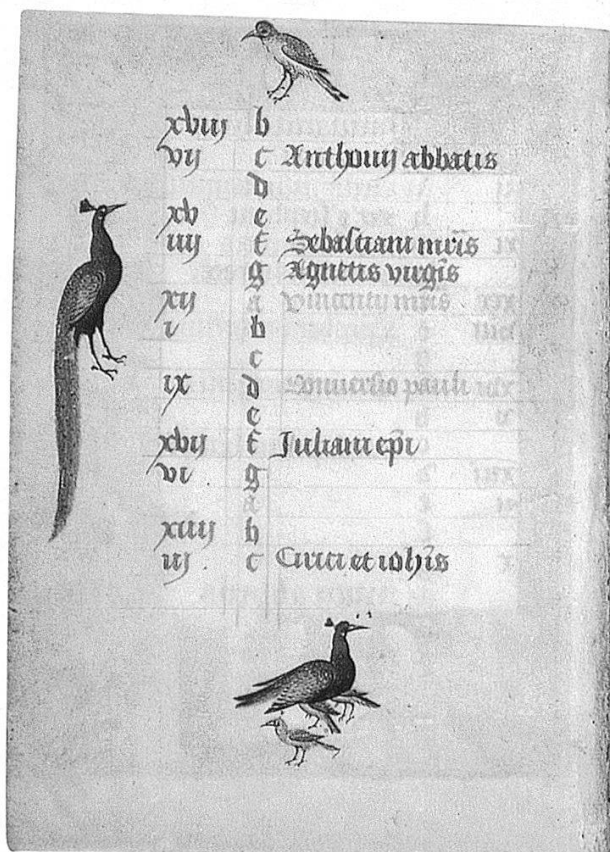 xviij b
vij c Anthonij abbatis
d
xv e
iiij f Sebastiani mr̄is
g Agnetis virgīs
xij a Vincentij mr̄is
i b
c
ix d Conuersio pauli
e
xvij f Juliani ep̄i
vi g
a
xiiij b
iij c Ciri et ioh̄is